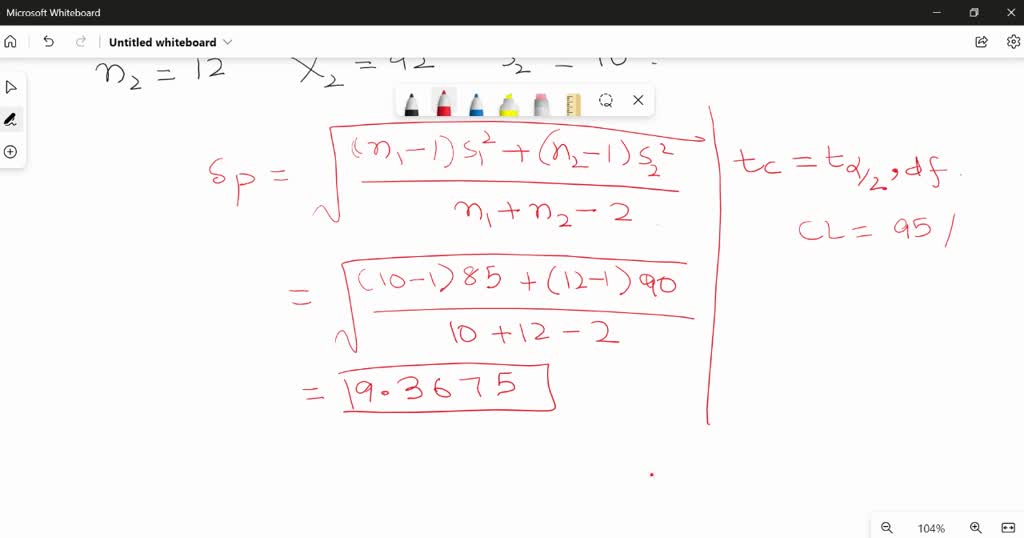 Microsoft Whiteboard
Untitled whiteboard
n₂ = 12 X₂ = 92
Sp = √((n₁-1)S₁² + (n₂-1)S₂² / n₁+n₂-2)
= √((10-1)85 + (12-1)90 / 10+12-2)
= 9.3675
tc = tα/₂, df.
CL = 95/
104%